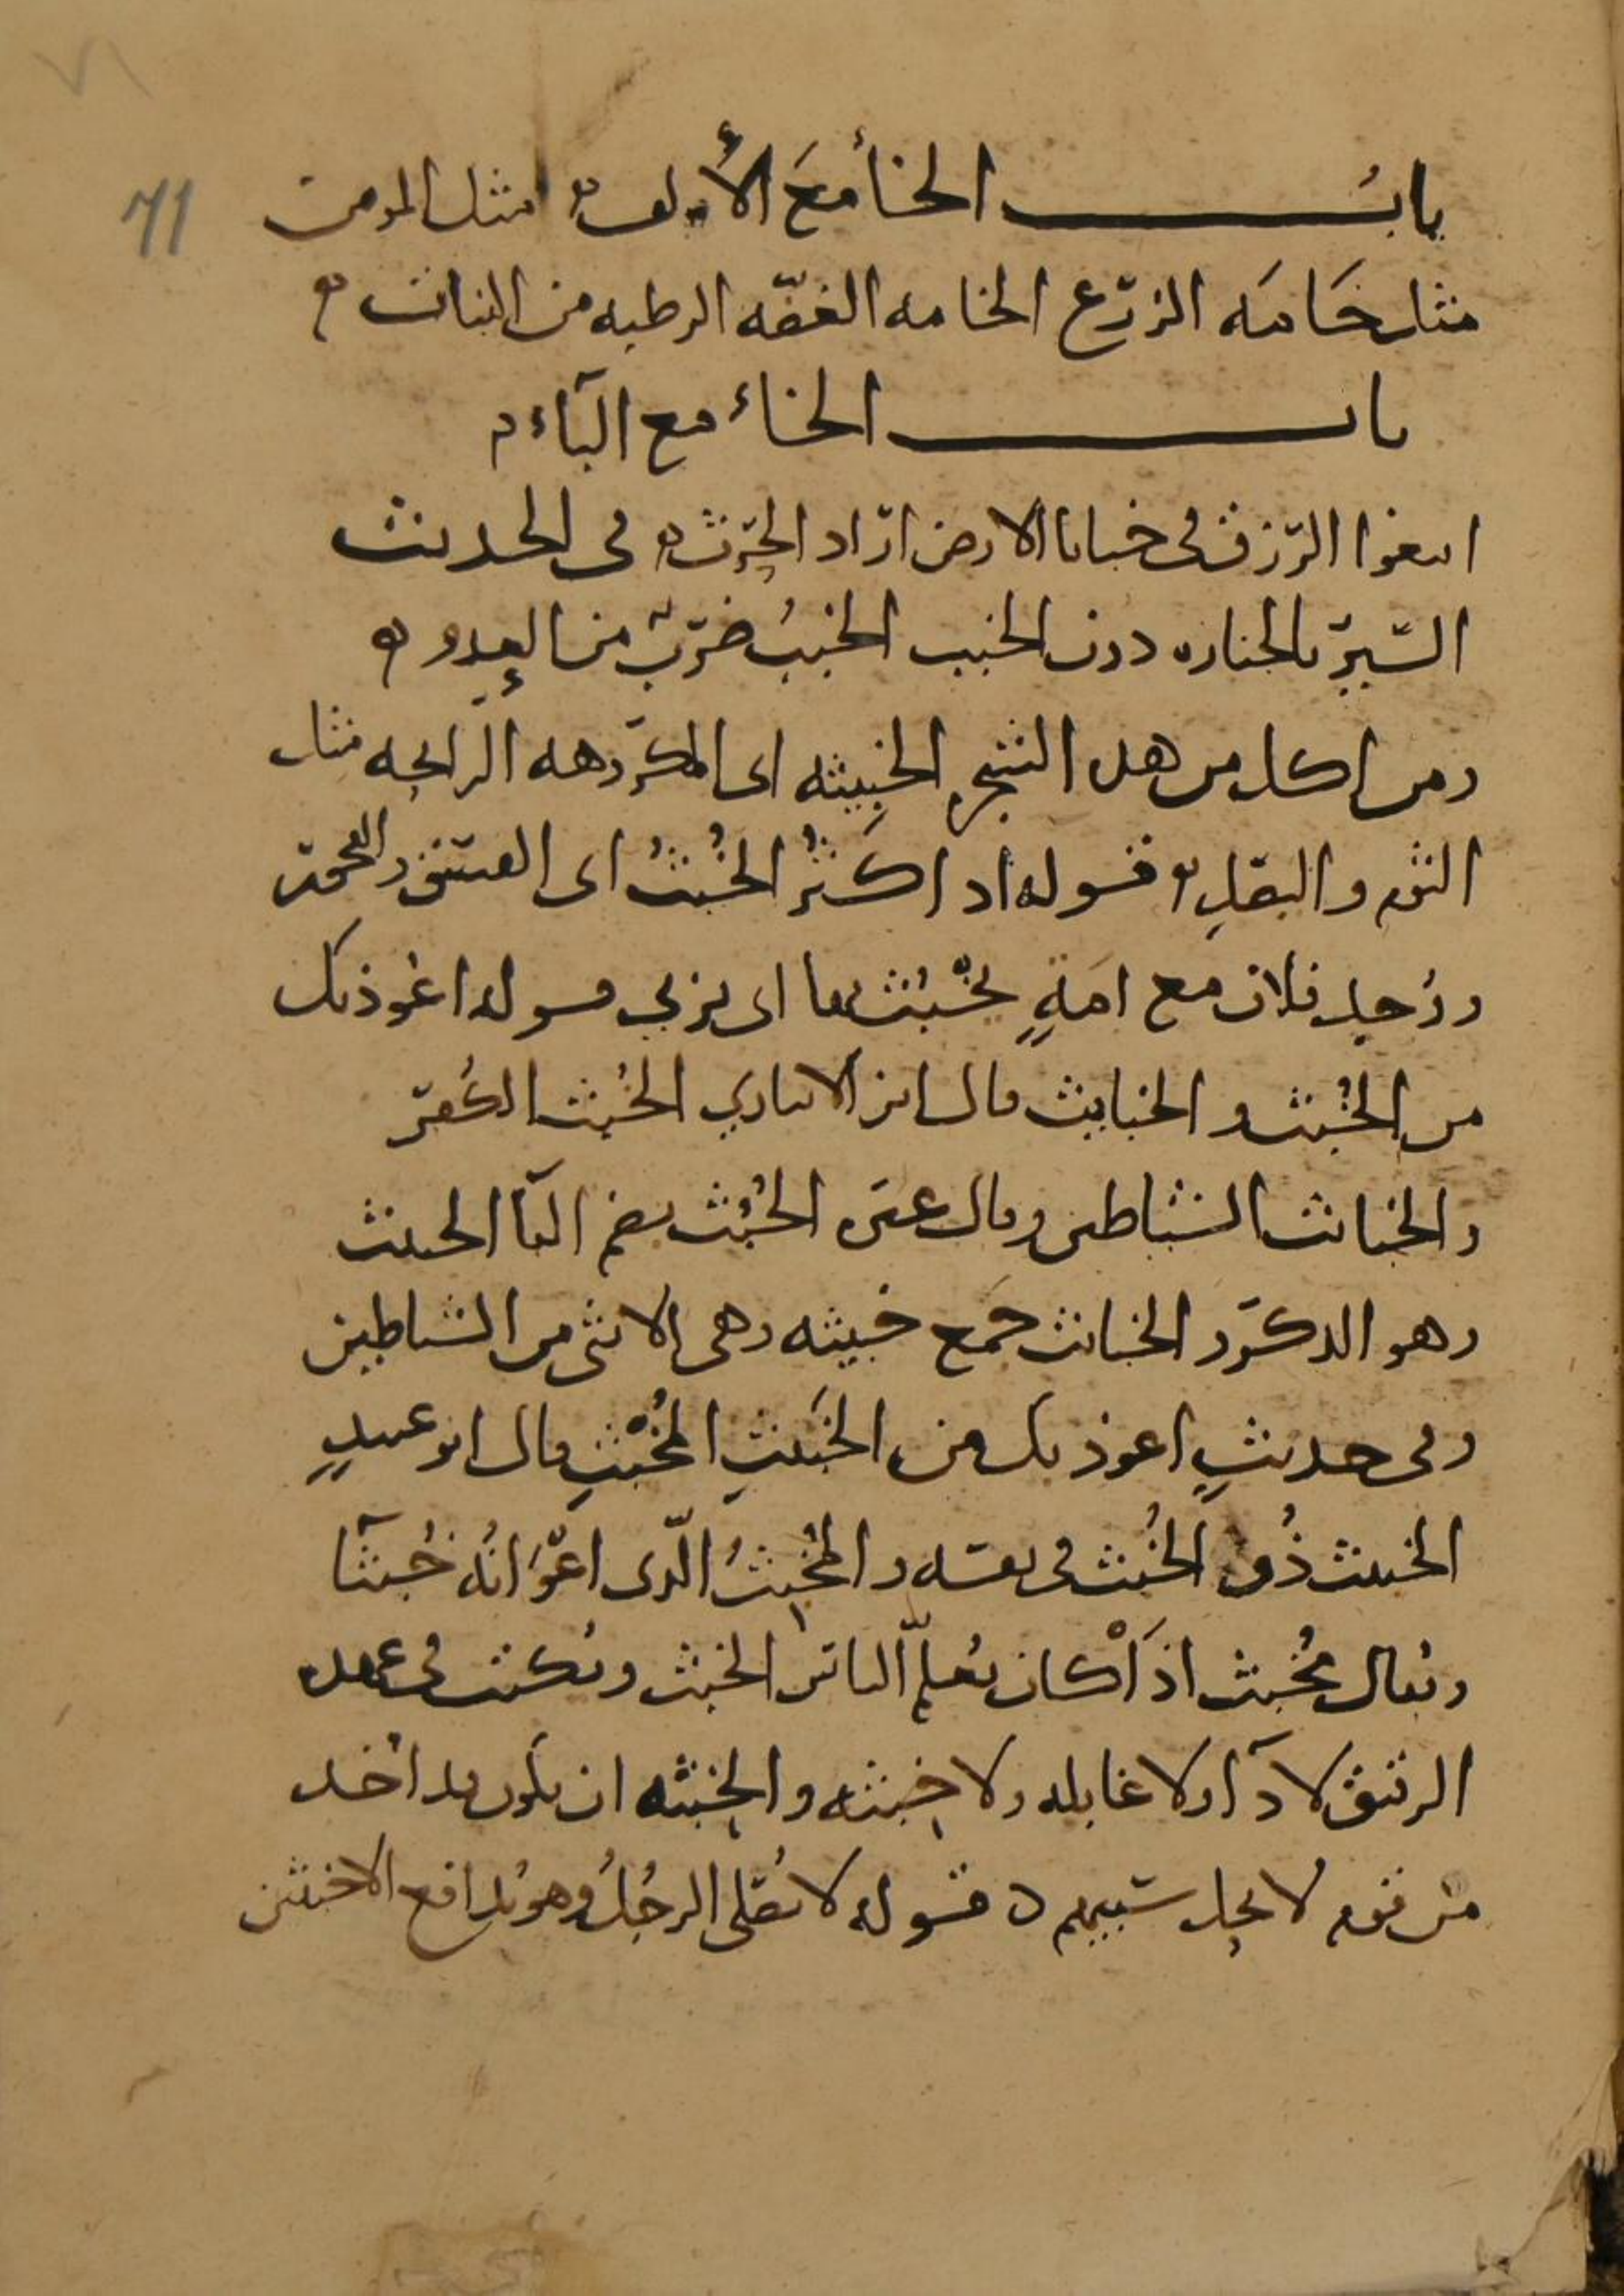 ٧١
71
باب الخاء مع الألف مثل المومن
مثل خامه الزرع الخامه الغضّه الرطبه من النبات
باب الخاء مع الباء
ابتغوا الرزق في خبايا الارض اراد الحرث في الحديث
السير بالجنازه دون الخبب الخبب ضرب من العدو
ومن اكل من هذه الشجره الخبيثه اى المكروهه الرايحه مثل
الثوم والبصل قوله اذا كثر الخبث اى الفسق والفجور
ووُجد فلان مع امةٍ يخبث بها اى يزني قوله اعوذ بك
من الخبث والخبايث قال ابن الانباري الخبث الكفر
والخبائث الشياطين وقال غيره الخبث بضم الباء الخبيث
وهو الذكر والخبائث جمع خبيثه وهى الانثى من الشياطين
وفى حديثٍ اعوذ بك من الخبيث المخبث قال ابو عبيدٍ
الخبيث ذو الخبث فى نفسه والمخبث الّذى اعوانه خبثآ
ويقال مخبث اذا كان يعلم الناس الخبث ويكتب فى عهده
الرقيق لا دآ ولا غايله ولا خبثه والخبثه ان يكون قد اخذ
من قوم لا يحل سبيهم قوله لا يصلى الرجل وهو يدافع الاخبثين